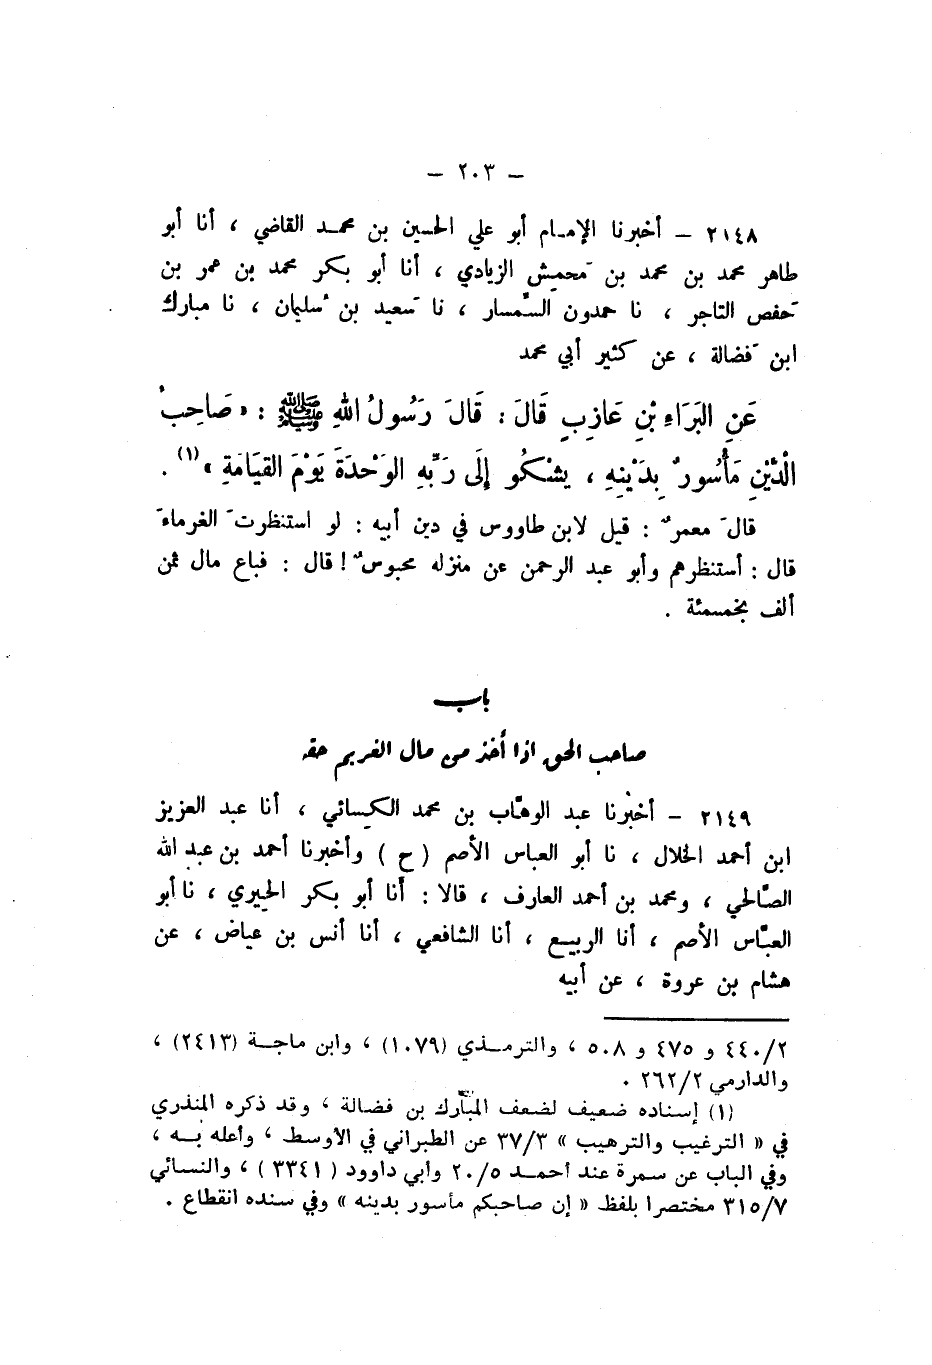 – ٢٠٣ –
٢١٤٨ – أخبرنا الإمـام أبو علي الحسين بن محمـد القاضي ، أنا أبو
طاهر محمد بن محمد بن مَحمِش الزيادي ، أنا أبو بكر محمد بن عمر بن
حَفص التاجر ، نا حمدون السَّمسار ، نا سَعيد بن سُليمان ، نا مبارك
ابن فَضالة ، عن كثير أبي محمد
عَنِ البَرَاءِ بْنِ عَازِبٍ قَالَ : قَالَ رَسُولُ اللهِ ﷺ : « صَاحِبُ
الْدَّيْنِ مَأْسُورٌ بِدَيْنِهِ ، يَشْكُو إِلَى رَبِّهِ الوَحْدَةَ يَوْمَ القِيَامَةِ » (١) .
قالَ معمرٌ : قيل لابن طاووس في دين أبيه : لو استنظرتَ الغرماءَ
قال : أستنظرهم وأبو عبد الرحمن عن منزله محبوسٌ ! قال : فباع مال ثمن
ألف بخمسمئة .
باب
صاحب الحق إذا أخذ من مال الغريم حقه
٢١٤٩ – أخبرنا عبد الوهَّاب بن محمد الكسائي ، أنا عبد العزيز
ابن أحمد الخلال ، نا أبو العباس الأصم ( ح ) وأخبرنا أحمد بن عبد الله
الصَّالحي ، ومحمد بن أحمد العارف ، قالا : أنا أبو بكر الحيري ، نا أبو
العبَّاس الأصم ، أنا الربيع ، أنا الشافعي ، أنا أنس بن عياض ، عن
هشام بن عروة ، عن أبيه
٤٤٠/٢ و ٤٧٥ و ٥٠٨ ، والترمـذي (١٠٧٩) ، وابن ماجـة (٢٤١٣) ،
والدارمي ٢٦٢/٢ .
(١) إسناده ضعيف لضعف المبارك بن فضالة ، وقد ذكره المنذري
في « الترغيب والترهيب » ٣٧/٣ عن الطبراني في الأوسط ، وأعله بـه ،
وفي الباب عن سمرة عند أحمـد ٢٠/٥ وأبي داوود ( ٣٣٤١ ) ، والنسائي
٣١٥/٧ مختصرا بلفظ « إن صاحبكم مأسور بدينه » وفي سنده انقطاع .